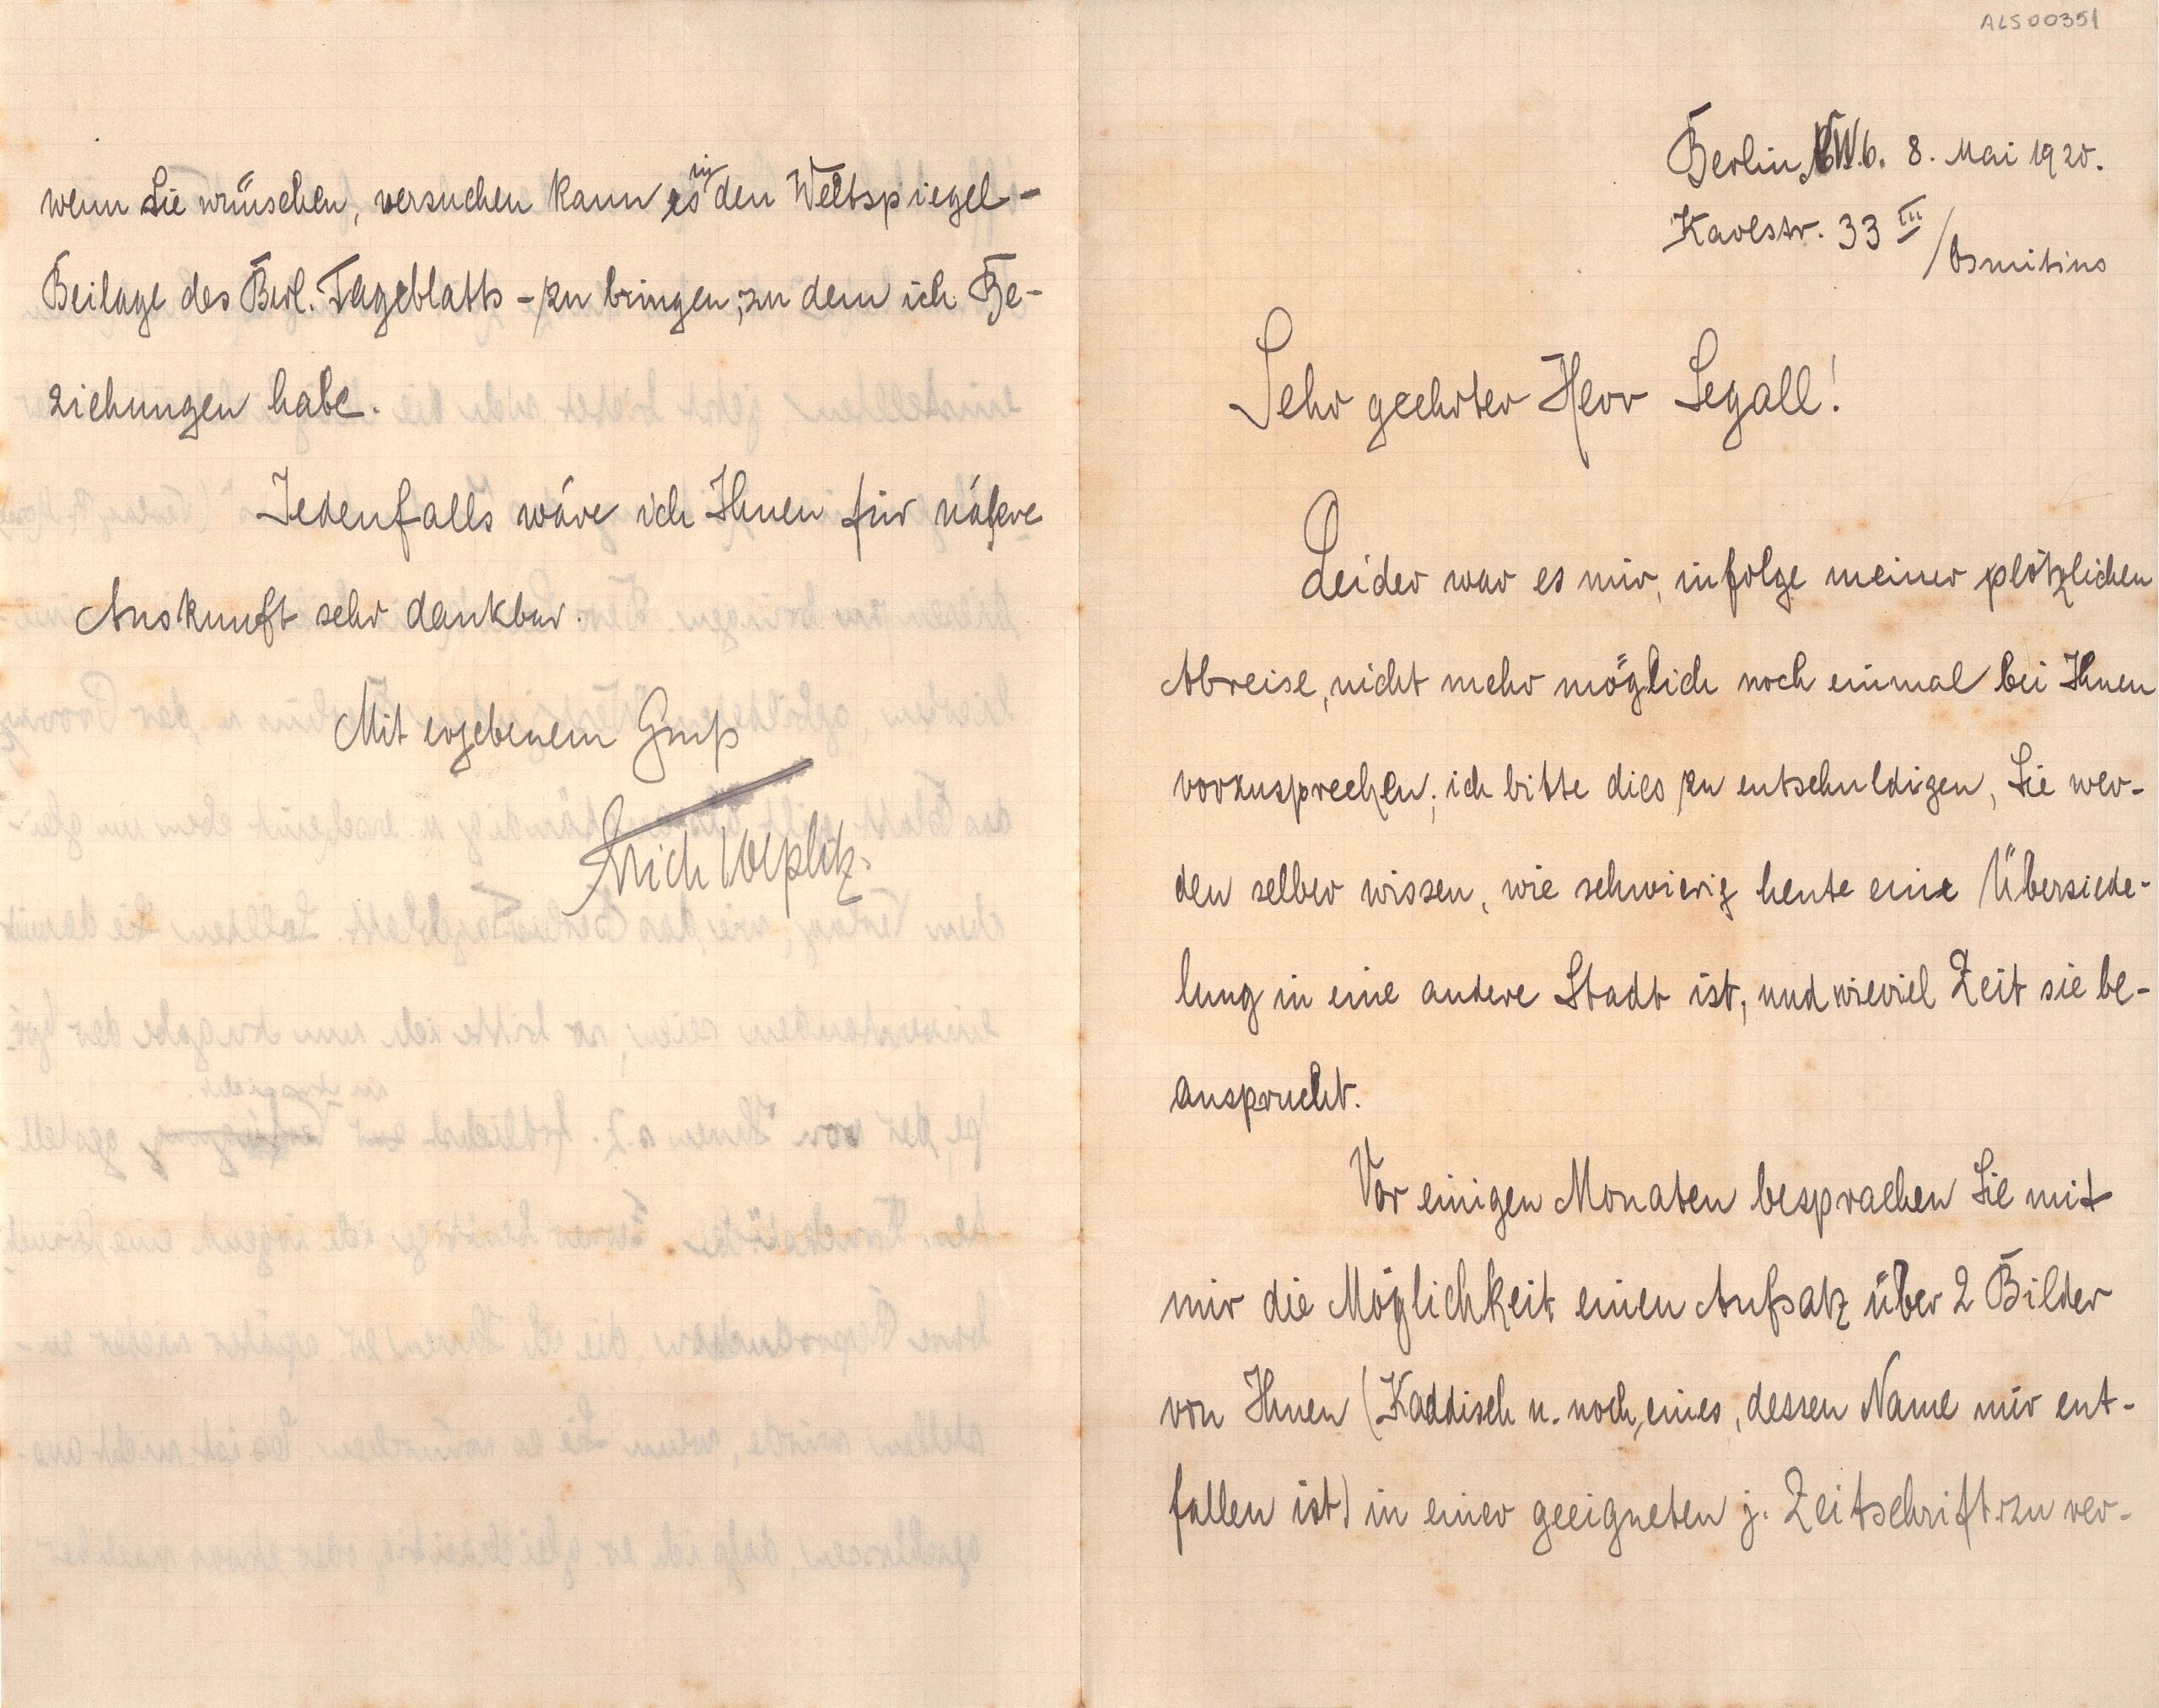 ALS00351
Berlin NW.6. 8. Mai 1920.
Karlstr. 33 III
/Osmitius
Sehr geehrter Herr Segall!
Leider war es mir, infolge meiner plötzlichen
Abreise, nicht mehr möglich noch einmal bei Ihnen
vorzusprechen; ich bitte dies zu entschuldigen, Sie wer-
den selber wissen, wie schwierig heute eine Übersiede-
lung in eine andere Stadt ist, und wieviel Zeit sie be-
ansprucht.
Vor einigen Monaten besprachen Sie mit
mir die Möglichkeit einen Aufsatz über 2 Bilder
von Ihnen (Kaddisch u. noch eines, dessen Name mir ent-
fallen ist) in einer geeigneten j. Zeitschrift zu ver-
wenn Sie wünschen, versuchen kann es in den Weltspiegel-
Beilage des Berl. Tageblatts - zu bringen, zu dem ich Be-
ziehungen habe.
Jedenfalls wäre ich Ihnen für nähere
Auskunft sehr dankbar.
Mit ergebenem Gruß
Erich